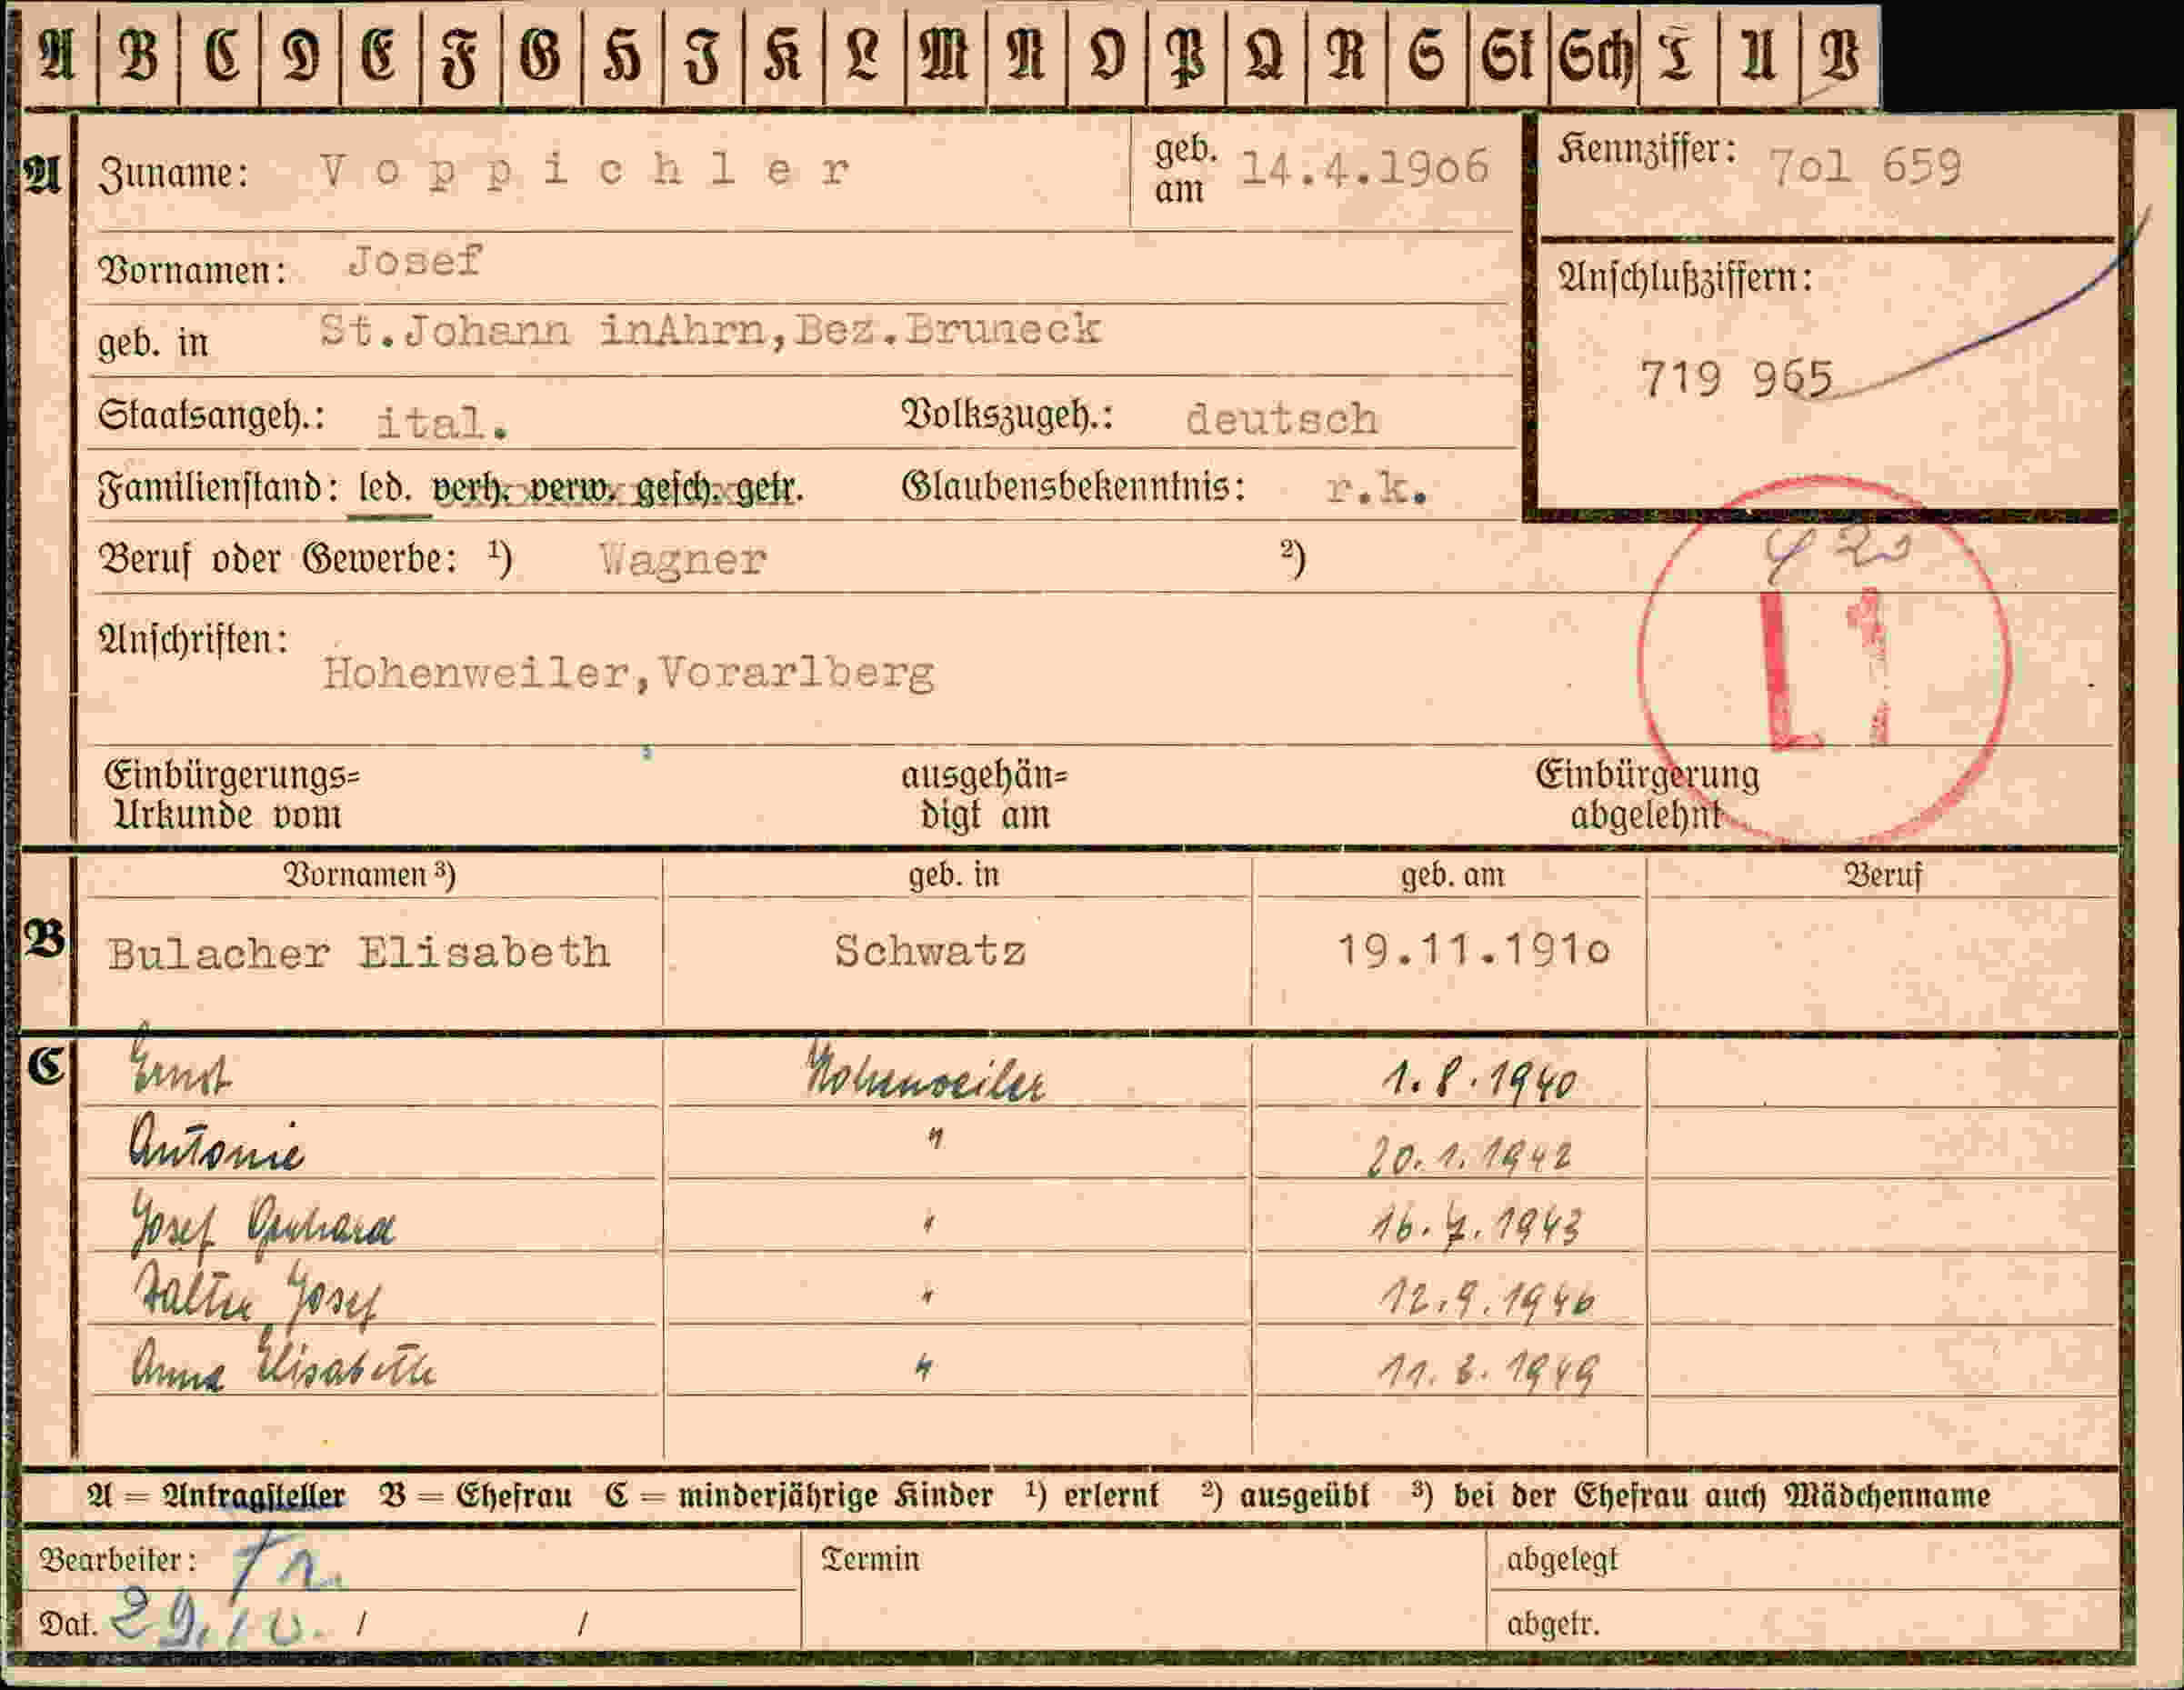 A B C D E F G H J K L M N O P Q R S St Sch T U V
A Zuname: Voppichler geb. am 14.4.19o6 Kennziffer: 7o1 659
Vornamen: Josef
Anschlußziffern:
geb. in St.Johann inAhrn,Bez.Bruneck
719 965
Staatsangeh.: ital. Volkszugeh.: deutsch
Familienstand: led. verh. verw. gesch. getr. Glaubensbekenntnis: r.k.
Beruf oder Gewerbe: ¹) Wagner ²)
L1
Anschriften:
Hohenweiler,Vorarlberg
Einbürgerungs= ausgehän= Einbürgerung
Urkunde vom digt am abgelehnt
Vornamen ³) geb. in geb. am Beruf
B Bulacher Elisabeth Schwatz 19.11.191o
C Ernst Hohenweiler 1.8.1940
Antonie " 20.1.1942
Josef Gerhard " 16.7.1943
Walter Josef " 12.9.1946
Anna Elisabeth " 11. .1949
A = Antragsteller B = Ehefrau C = minderjährige Kinder ¹) erlernt ²) ausgeübt ³) bei der Ehefrau auch Mädchenname
Bearbeiter: Termin abgelegt
Dat. 29.10. / / abgetr.